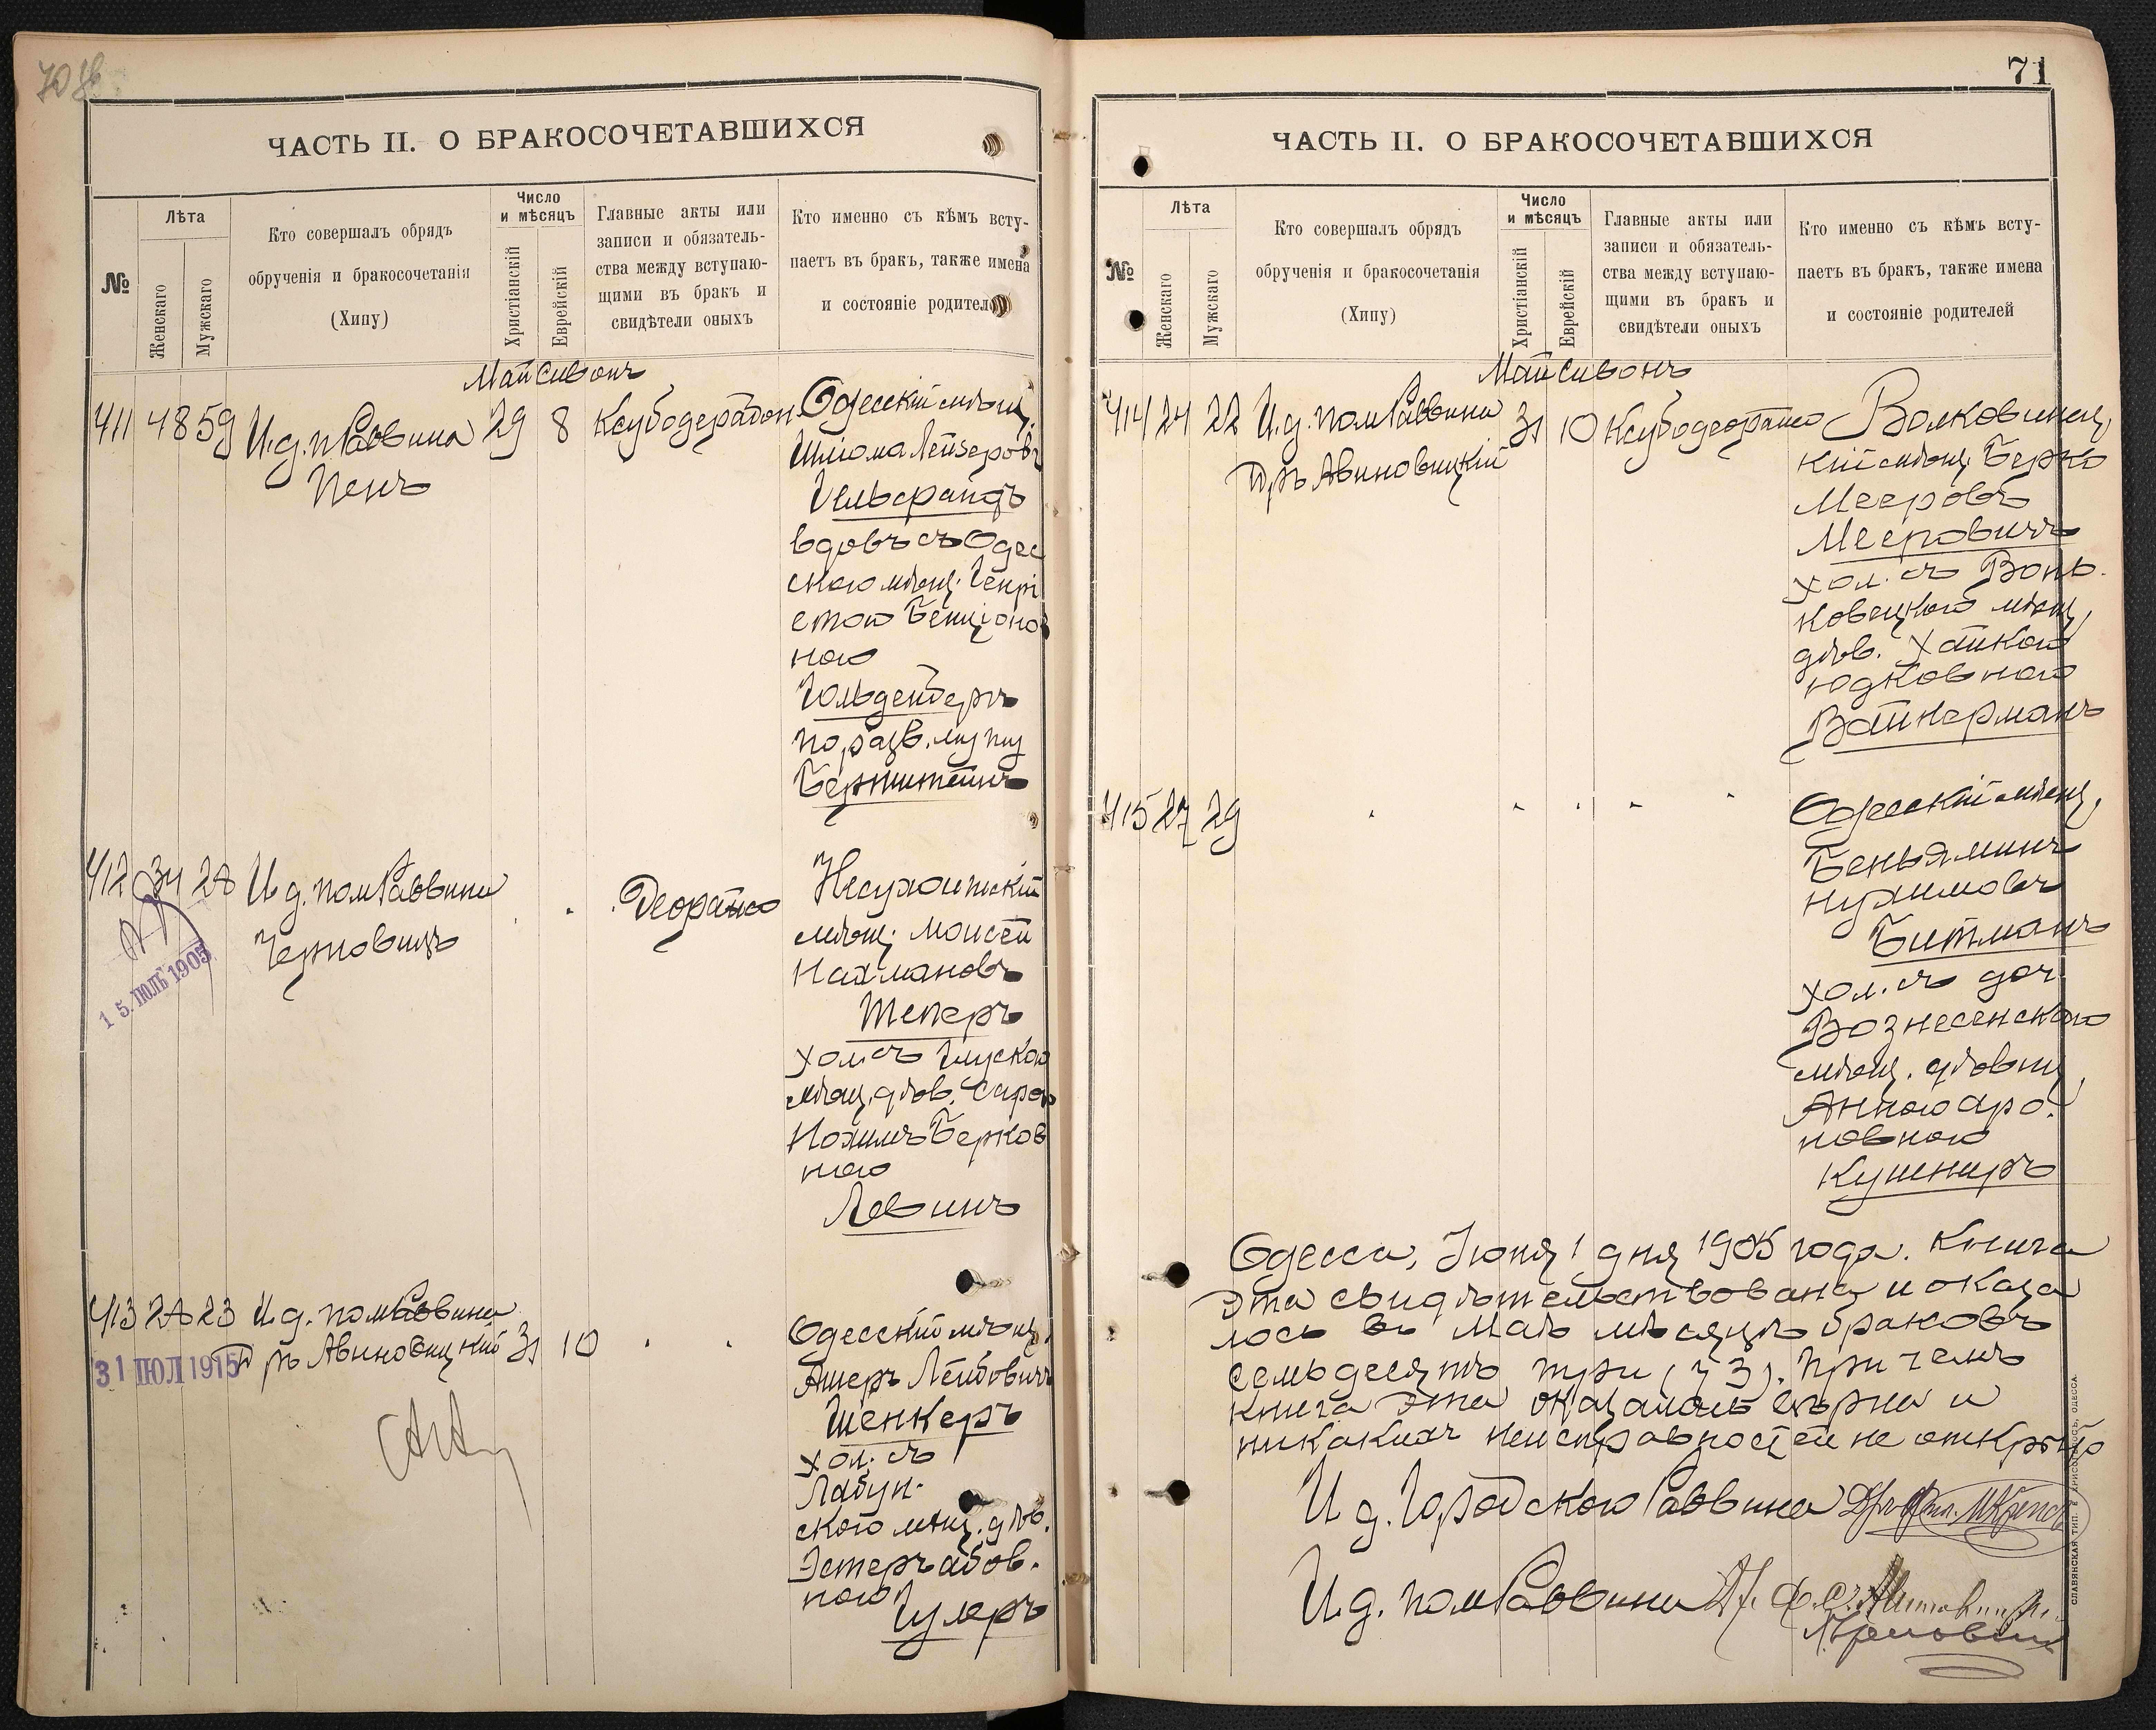 ЧАСТЬ II. О БРАКОСОЧЕТАВШИХСЯ
№
Лѣта
Женскаго
Мужскаго
Кто совершалъ обрядъ
обрученія и бракосочетанія
(Хипу)
Число
и мѣсяцъ
Христіанскій
Еврейскій
Главные акты или
записи и обязатель-
ства между вступаю-
щими въ бракъ и
свидѣтели оныхъ
Кто именно съ кѣмъ всту-
паетъ въ бракъ, также имена
и состояніе родителей
Май Сивонъ
411 48 59 И.д.п Раввина 29 8 Ксубодерабон
Пенъ
Одесскій мѣщ.
Шлома Лейзеровъ
Гельфандъ
вдовъ съ Одес
скою мѣщ. Генрі
етою Бенціонов
ною
Гольденбергъ
по разв. мужу
Бернштейнъ
412 34 28 И.д. пом Раввина Деорайсо
Черновицъ
15. ІЮЛЬ 1905
Несухоижскій
мѣщ. Моисей
Нахмановъ
Теперъ
хол. съ Глускою
мѣщ. дѣв. Сарою
Нохимъ Берков
ною
Левинъ
413 28 23 И.д. пом Раввина
Д ръ Авиновицкій 31 10
31 ІЮЛ 1915
Одесскій мѣщ.
Ашеръ Лейбовичъ
Шенкеръ
хол. съ
Лабун-
скою мѣщ. дѣв.
Эстеръ Абов-
ною Гулеръ
71
ЧАСТЬ II. О БРАКОСОЧЕТАВШИХСЯ
№
Лѣта
Женскаго
Мужскаго
Кто совершалъ обрядъ
обрученія и бракосочетанія
(Хипу)
Число
и мѣсяцъ
Христіанскій
Еврейскій
Главные акты или
записи и обязатель-
ства между вступаю-
щими въ бракъ и
свидѣтели оныхъ
Кто именно съ кѣмъ всту-
паетъ въ бракъ, также имена
и состояніе родителей
Май Сивонъ
414 24 22 И.д. пом Раввина 31 10 Ксубодеорайсо
Д ръ Авиновицкій
Волковинец
кій мѣщ. Берко
Мееровъ
Мееровичъ
хол. съ Вонь-
ковецкою мѣщ.
дѣв. Хайкою
Юдковною
Вайнерманъ
415 27 29
Одесскій мѣщ.
Беньяминъ
Нухимовъ
Битманъ
хол. съ доч
Вознесенскаго
мѣщ. дѣвиц.
Анною Аро-
новною
Кушниръ
Одесса, Іюня 1 дня 1905 года. Книга
эта свидѣтельствована и оказа
лось въ Маѣ мѣсяцѣ браковъ
семьдесятъ три (73). При чемъ
книга эта оказалась вѣрна и
никакихъ неисправностей не открыто
И.д. Городского Раввина
И.д. пом Раввина
СЛАВЯНСКАЯ ТИП. Е. ХРИСОГЕЛОСЪ, ОДЕССА.